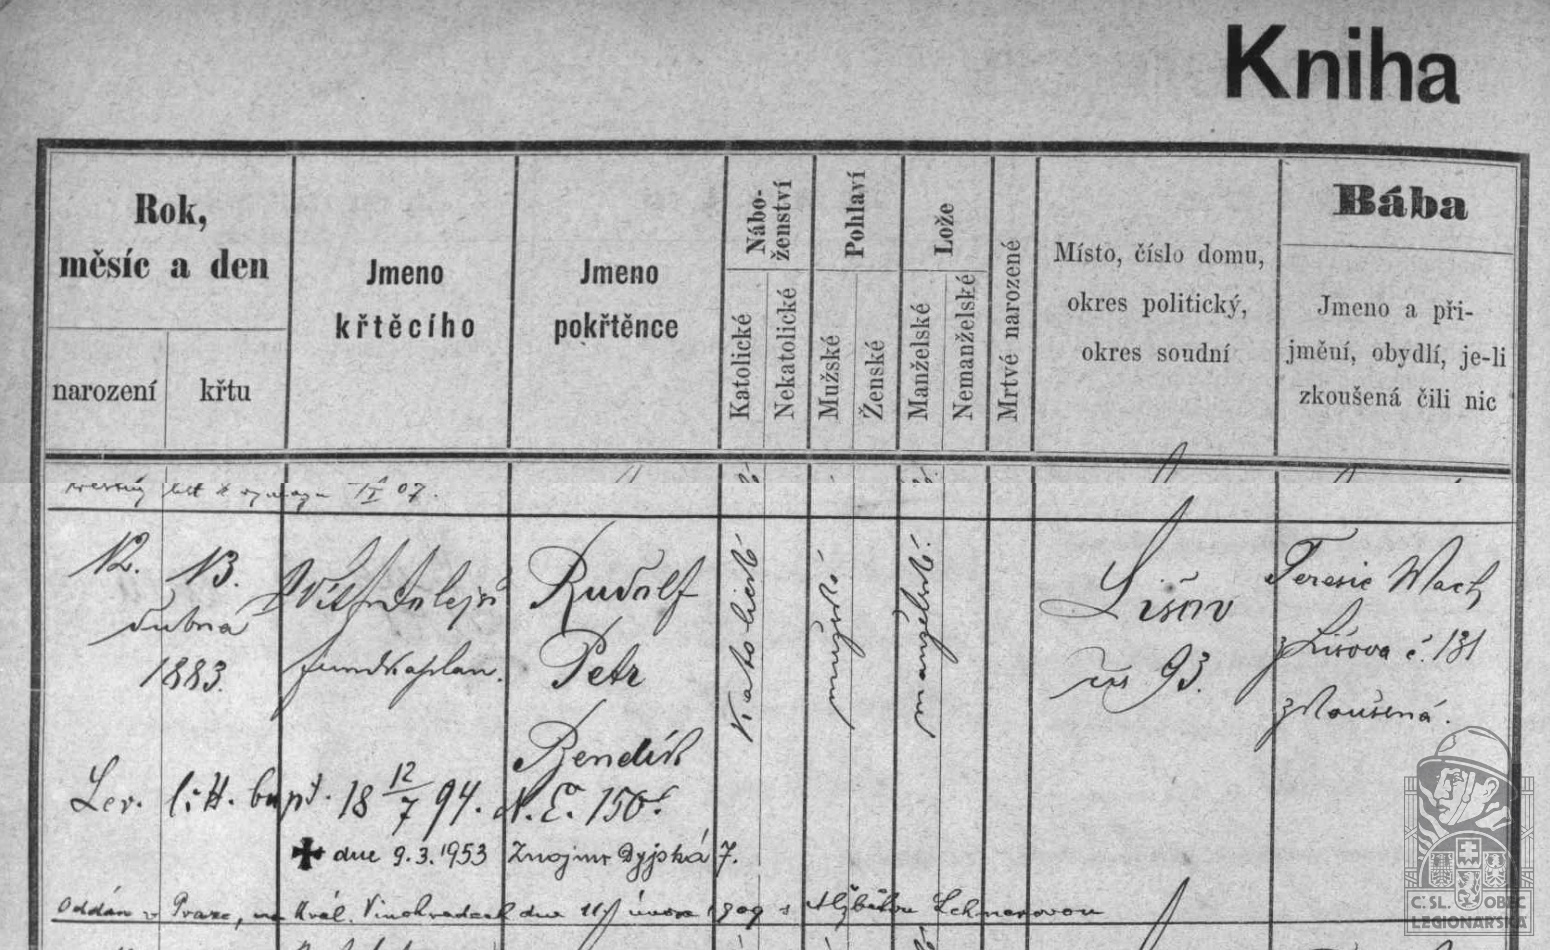 Kniha
Rok,
měsíc a den
narození
křtu
Jmeno
křtěcího
Jmeno
pokřtěnce
Nábo-
ženství
Katolické
Nekatolické
Pohlaví
Mužské
Ženské
Lože
Manželské
Nemanželské
Mrtvé narozené
Místo, číslo domu,
okres politický,
okres soudní
Bába
Jmeno a při-
jmění, obydlí, je-li
zkoušená čili nic
07.
12. 13.
dubna
1883.
Vít Dolejší
fundkaplan.
Rudolf
Petr
Bendík
katolické
mužské
manželské
Lišov
93.
Teresie Wach
z Lišova č. 131
zkoušená.
Lev. litt. bapt. 18 12/7 94. N. E. 150.
✠ dne 9.3.1953 Znojmo Dyjská 7.
Oddán v Praze, na Král. Vinohradech dne 11 února 1909 s Alžbětou
Č: SL. OBEC
LEGIONÁŘSKÁ